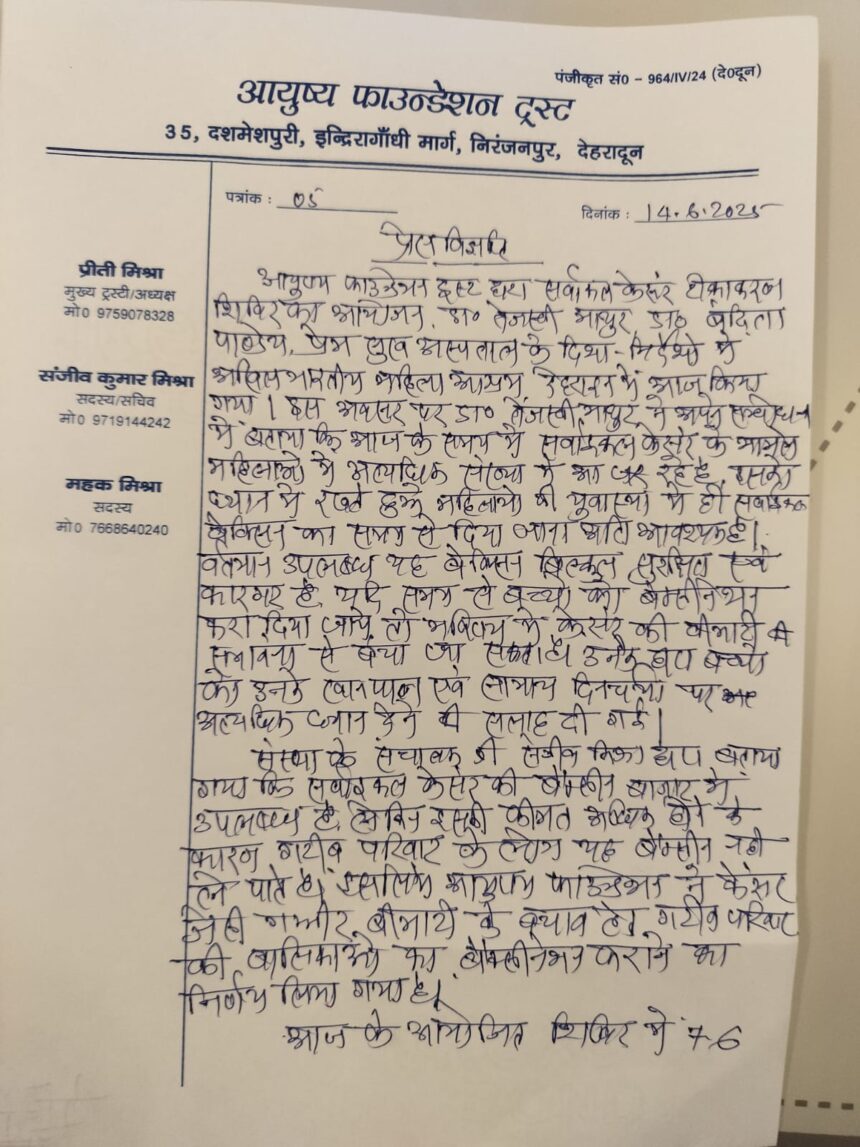 पंजीकृत सं0 - 964/IV/24 (दे0दून)
आयुष्य फाउन्डेशन ट्रस्ट
35, दशमेशपुरी, इन्दिरागाँधी मार्ग, निरंजनपुर, देहरादून
पत्रांक : 05
दिनांक : 14.6.2025
प्रीती मिश्रा
मुख्य ट्रस्टी/अध्यक्ष
मो0 9759078328
संजीव कुमार मिश्रा
सदस्य/सचिव
मो0 9719144242
महक मिश्रा
सदस्य
मो0 7668640240
प्रेस विज्ञप्ति
आयुष्य फाउन्डेशन ट्रस्ट द्वारा सर्वाइकल केंसर टीकाकरण
शिविर का आयोजन, डा० तेजस्वी माथुर, डा०
पाण्डेय, प्रेम सुख अस्पताल के दिशा-निर्देशो मे
अखिल भारतीय महिला आश्रम, देहरादून मे आज किया
गया। इस अवसर पर डा० तेजस्वी माथुर ने अपने सम्बोधन
मे बताया कि आज के समय मे सर्वाइकल केंसर के मामले
महिलाओ मे अत्यधिक संख्या मे आ रहे है, इसको
ध्यान मे रखते हुअे महिलाओ की युवास्था मे ही सर्वाइकल
वैक्सिन का समय से दिया जाना अति आवश्यक है।
वर्तमान उपलब्ध यह वेक्सिन बिल्कुल सुरक्षित एवं
कारगर है, यदि समय से बच्चो को वेक्सीनेशन
करा दिया जाये, तो भविष्य मे केंसर की बीमारी की
सम्भावना से बचा जा सकता है। उनके द्वारा बच्चो
को उनके खानपान एवं सामान्य दिनचर्या पर
अत्यधिक ध्यान देने की सलाह दी गई।
संस्था के संचालक श्री संजीव मिश्रा द्वारा बताया
गया कि सर्वाइकल केंसर की वेक्सीन बाजार मे
उपलब्ध है, लेकिन इसकी कीमत अधिक होने के
कारण गरीब परिवार के लोग यह वेक्सीन नही
ले पाते है। इसलिये आयुष्य फाउन्डेशन ने केंसर
जैसी गम्भीर बीमारी के बचाव हेतु गरीब परिवार
की बालिकाओ का वेक्सीनेशन कराने का
निर्णय लिया गया है।
आज के आयोजित शिविर मे 76